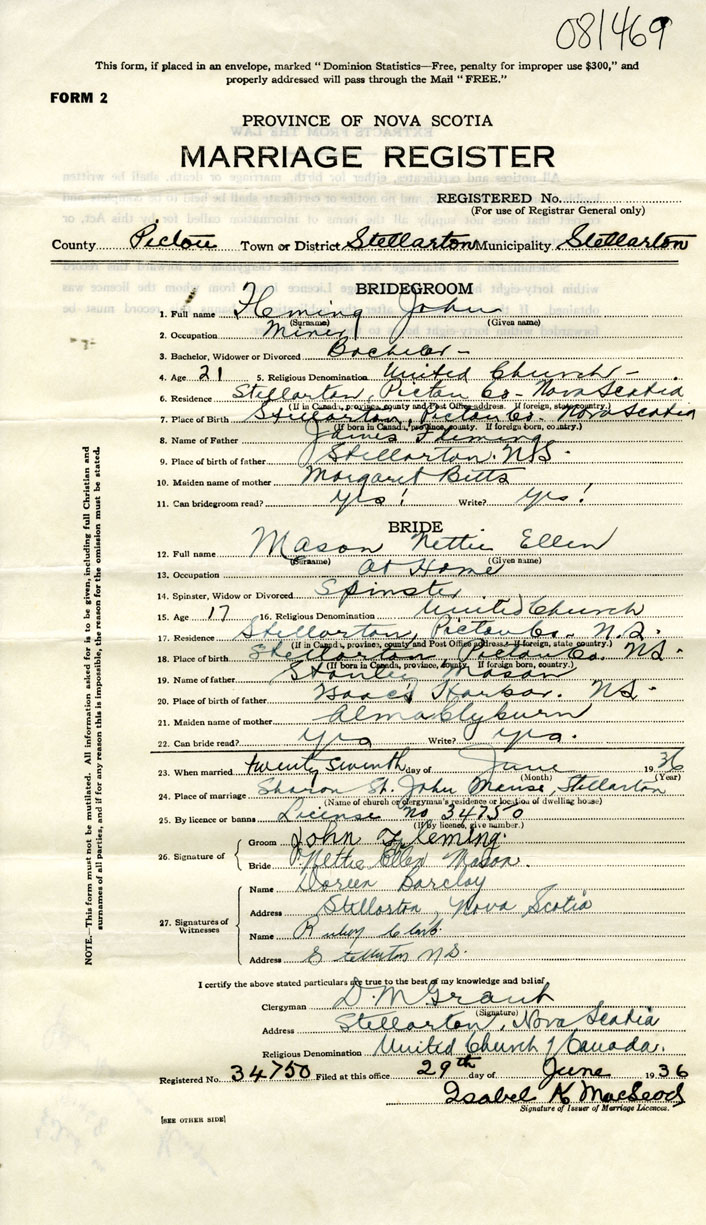 081469
This form, if placed in an envelope, marked "Dominion Statistics—Free, penalty for improper use $300," and
properly addressed will pass through the Mail "FREE."
FORM 2
PROVINCE OF NOVA SCOTIA
MARRIAGE REGISTER
REGISTERED No.
(For use of Registrar General only)
County Pictou Town or District Stellarton Municipality Stellarton
BRIDEGROOM
1. Full name Fleming John
(Surname) (Given name)
2. Occupation Miner
3. Bachelor, Widower or Divorced Bachelor -
4. Age 21 5. Religious Denomination United Church -
6. Residence Stellarton, Pictou Co- Nova Scotia
(If in Canada, province, county and Post Office address. If foreign, state country.)
7. Place of Birth Stellarton, Pictou Co. Nova Scotia
(If born in Canada, province, county. If foreign born, country.)
8. Name of Father James Fleming
9. Place of birth of father Stellarton. N.S.
10. Maiden name of mother Margaret Bitts
11. Can bridegroom read? Yes! Write? Yes!
BRIDE
12. Full name Mason Nettie Ellen
(Surname) (Given name)
13. Occupation At Home
14. Spinster, Widow or Divorced Spinster
15. Age 17 16. Religious Denomination United Church
17. Residence Stellarton, Pictou Co- N.S.
(If in Canada, province, county and Post Office address. If foreign, state country.)
18. Place of birth Stellarton, Pictou Co. NS-
(If born in Canada, province, county. If foreign born, country.)
19. Name of father Stanley Mason
20. Place of birth of father Isaac's Harbor. NS-
21. Maiden name of mother Alma Clyburn
22. Can bride read? Yes Write? Yes.
23. When married twenty seventh day of June 1936
(Month) (Year)
24. Place of marriage Sharon St. John Manse, Stellarton
(Name of church or clergyman's residence or location of dwelling house)
25. By licence or banns License No 34750
(If by licence, give number.)
26. Signature of Groom John Fleming.
Bride Nettie Ellen Mason.
27. Signatures of Witnesses
Name Doreen Barclay
Address Stellarton, Nova Scotia
Name Ruby Clark
Address Stellarton N.S.
I certify the above stated particulars are true to the best of my knowledge and belief
Clergyman D. M Grant
(Signature)
Address Stellarton, Nova Scotia
Religious Denomination United Church of Canada.
Registered No. 34750 Filed at this office 29th day of June 1936
Isabel K MacLeod
Signature of Issuer of Marriage Licences.
[SEE OTHER SIDE]
NOTE.—This form must not be mutilated. All information asked for is to be given, including full Christian and
surnames of all parties, and if for any reason this is impossible, the reason for the omission must be stated.